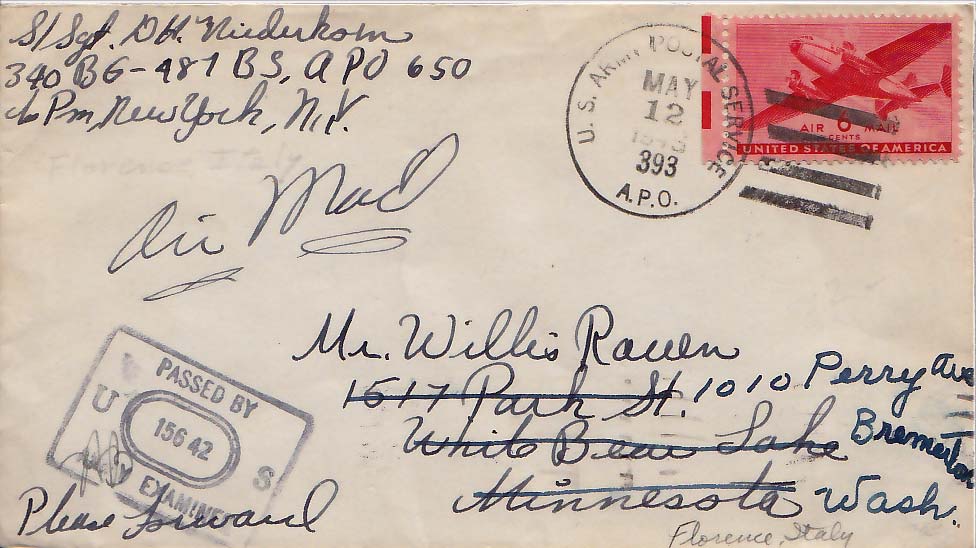 S/Sgt. D H. Niederkom
340 BG-487 BS, APO 650
c/o Pm, New York, N.Y.
Florence Italy
Air Mail
U. S. ARMY POSTAL SERVICE
MAY
12
393
A.P.O.
AIR 6 MAIL
CENTS
UNITED STATES OF AMERICA
Mr. Willis Rauen
1517 Park St. 1010 Perry Ave
White Bear Lake Bremerton
Minnesota Wash.
PASSED BY
U 15642 S
EXAMINER
Please forward
Florence, Italy